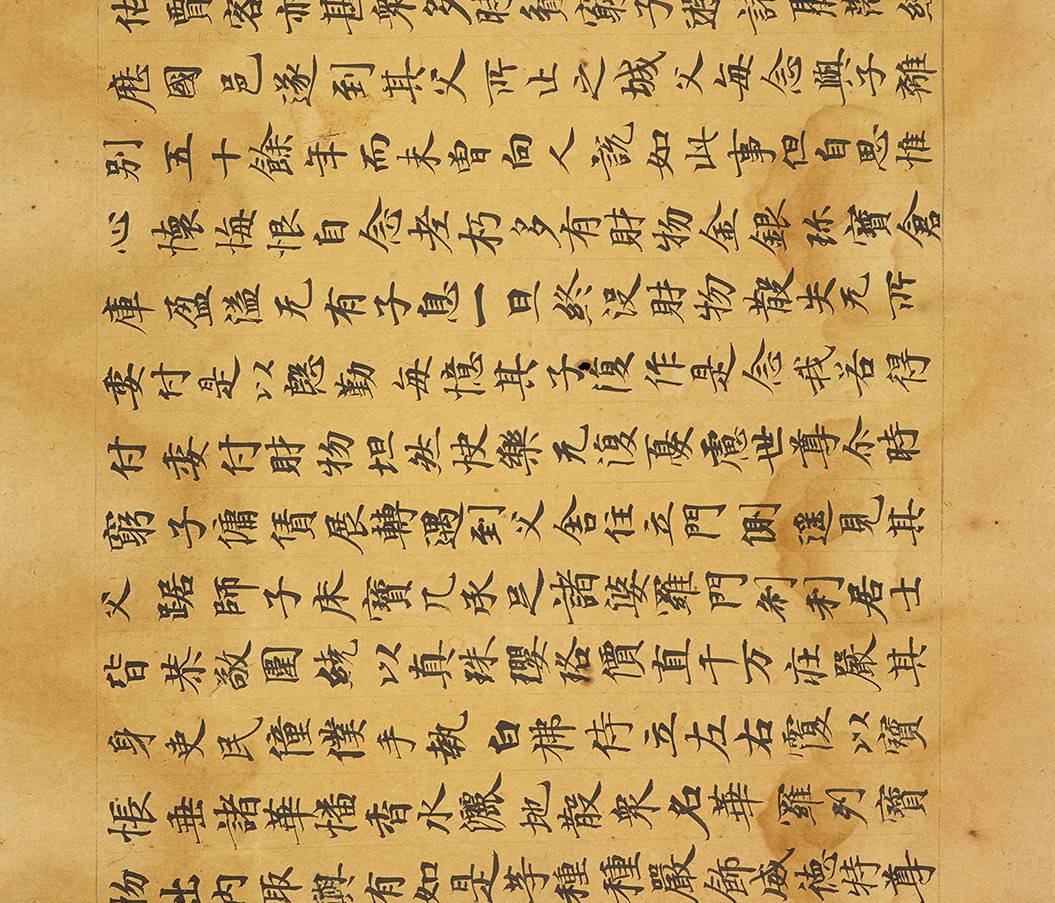 估賈客亦甚衆多時貧窮子遊諸聚落經
歷國邑遂到其父所止之城父每念與子離
別五十餘年而未曾向人說如此事但自思惟
心懷悔恨自念老朽多有財物金銀珎寶倉
庫盈溢无有子息一旦終没財物散失无所
委付是以慇懃每憶其子復作是念我若得
付委付財物坦然快樂无復憂慮世尊尒時
窮子傭賃展轉遇到父舍住立門側遥見其
父踞師子床寶几承足諸婆羅門刹利居士
皆恭敬圍繞以真珠瓔珞價直千万莊嚴其
身吏民僮僕手執白拂侍立左右覆以寶
帳垂諸華幡香水灑地散衆名華羅列寶
物出内取與有如是等種種嚴飾威德特尊